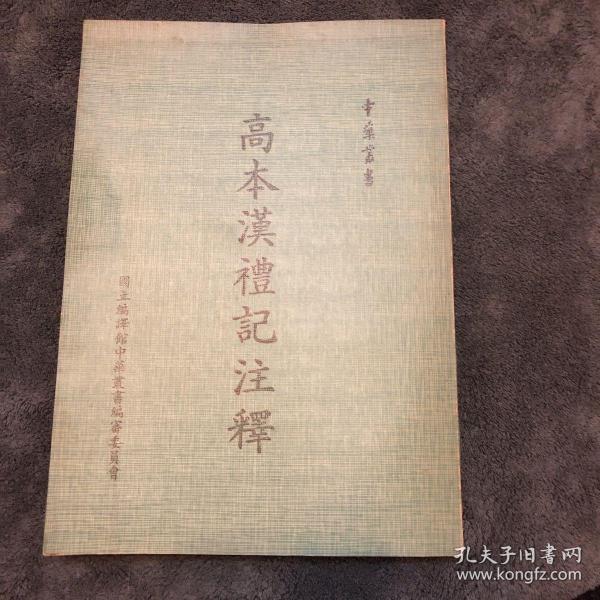 中華叢書
高本漢禮記注釋
國立編譯館中華叢書編審委員會
孔夫子旧书网
www.kongfz.com